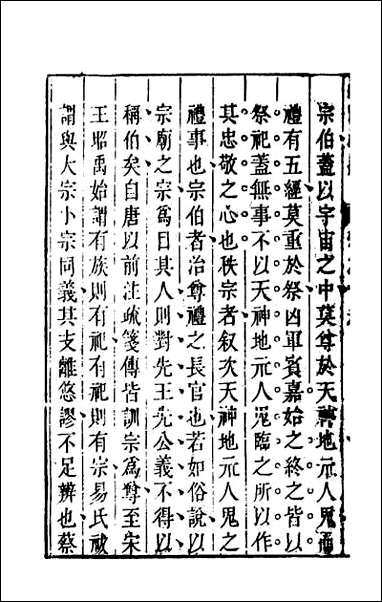 宗伯蓋以宇宙之中莫尊於天神地示人鬼而
禮有五經莫重於祭凶軍賓嘉始之終之皆以
祭祀蓋無事不以天神地示人鬼臨之所以作
其忠敬之心也秩宗者叙次天神地示人鬼之
禮事也宗伯者治尊禮之長官也若如俗說以
宗廟之宗爲目其人則對先王先公義不得以
稱伯矣自唐以前注疏箋傳皆訓宗爲尊至宋
王昭禹始謂有族則有祀有祀則有宗易氏祓
謂與大宗小宗同義其支離悠謬不足辨也蔡